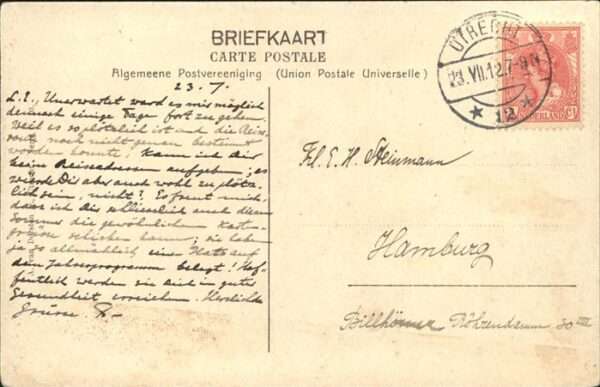 BRIEFKAART
CARTE POSTALE
Algemeene Postvereeniging (Union Postale Universelle)
UTRECHT
23.VII.12.7-8N
★ 12 ★
NEDERLAND
23.7.
L.E., Unerwartet ward es mir möglich
dennoch einige Tage fort zu gehen.
Weil es so plötzlich ist und die Reise-
route noch nicht genau bestimmt
werden konnte, kann ich Dir
keine Reiseadressen aufgeben; es
würde Dir aber auch wohl zu plötz-
lich sein, nicht? Es freut mich,
dass ich Dir schliesslich auch diesen
Sommer die gewöhnlichen Karten-
grüsse schicken kann; sie haben
ja so allmählich einen Platz auf
dem Jahresprogramm belegt! Hof-
fentlich werden sie Dich in guter
Gesundheit erreichen. Herzliche
Grüsse
Frl. E. H. Steinmann
Hamburg
Röhrendamm 30 III